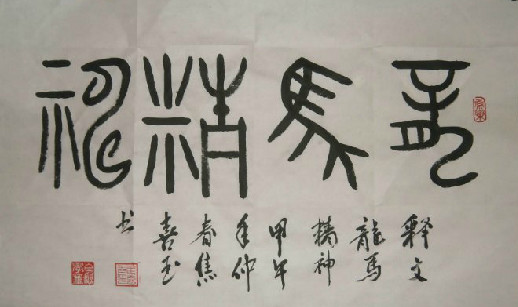 龍馬精神
释文
龍馬
精神
甲午
年仲
春焦
喜玉
书